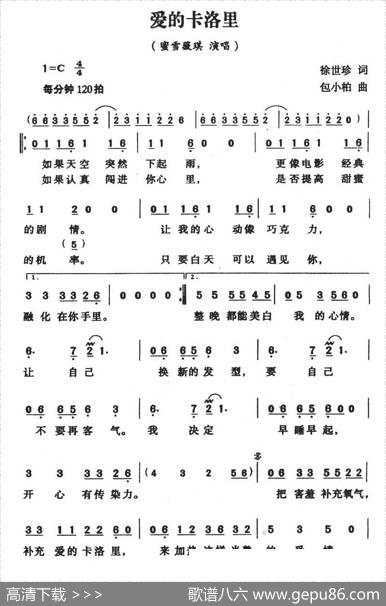 爱的卡洛里
(蜜雪薇琪 演唱)
1=C 4/4
徐世珍 词
每分钟120拍
包小柏 曲
(6633552 23112226 6633552 23112226)
0111 16 11 600 0111 16
如果天空 突然 下起 雨， 更像电影 经典
如果认真 闯进 你心 里， 是否提高 甜蜜
11 200 01116 16 11 600
的剧 情。 让我的心 动像 巧克 力，
(5)
的机 率。 只要白天 可以 遇见 你，
1. 2.
33 3326 (0000) 2 55 5545 (053510)
融化 在你手里。 整晚 都能美白 我 的心情。
6. 721. 06656 3 6. 721.
让 自己 换新的发型， 要 自己
06656 3. 6. 721. 06656 3.
不要再客 气。 我 决定 早睡早起，
33 3326 (432 56) 06335522
开心 有传染力。 把 害羞 补充氧气，
33112260
补充 爱的卡洛 里，
高清下载 >>>
歌谱八六 www.gepu86.com